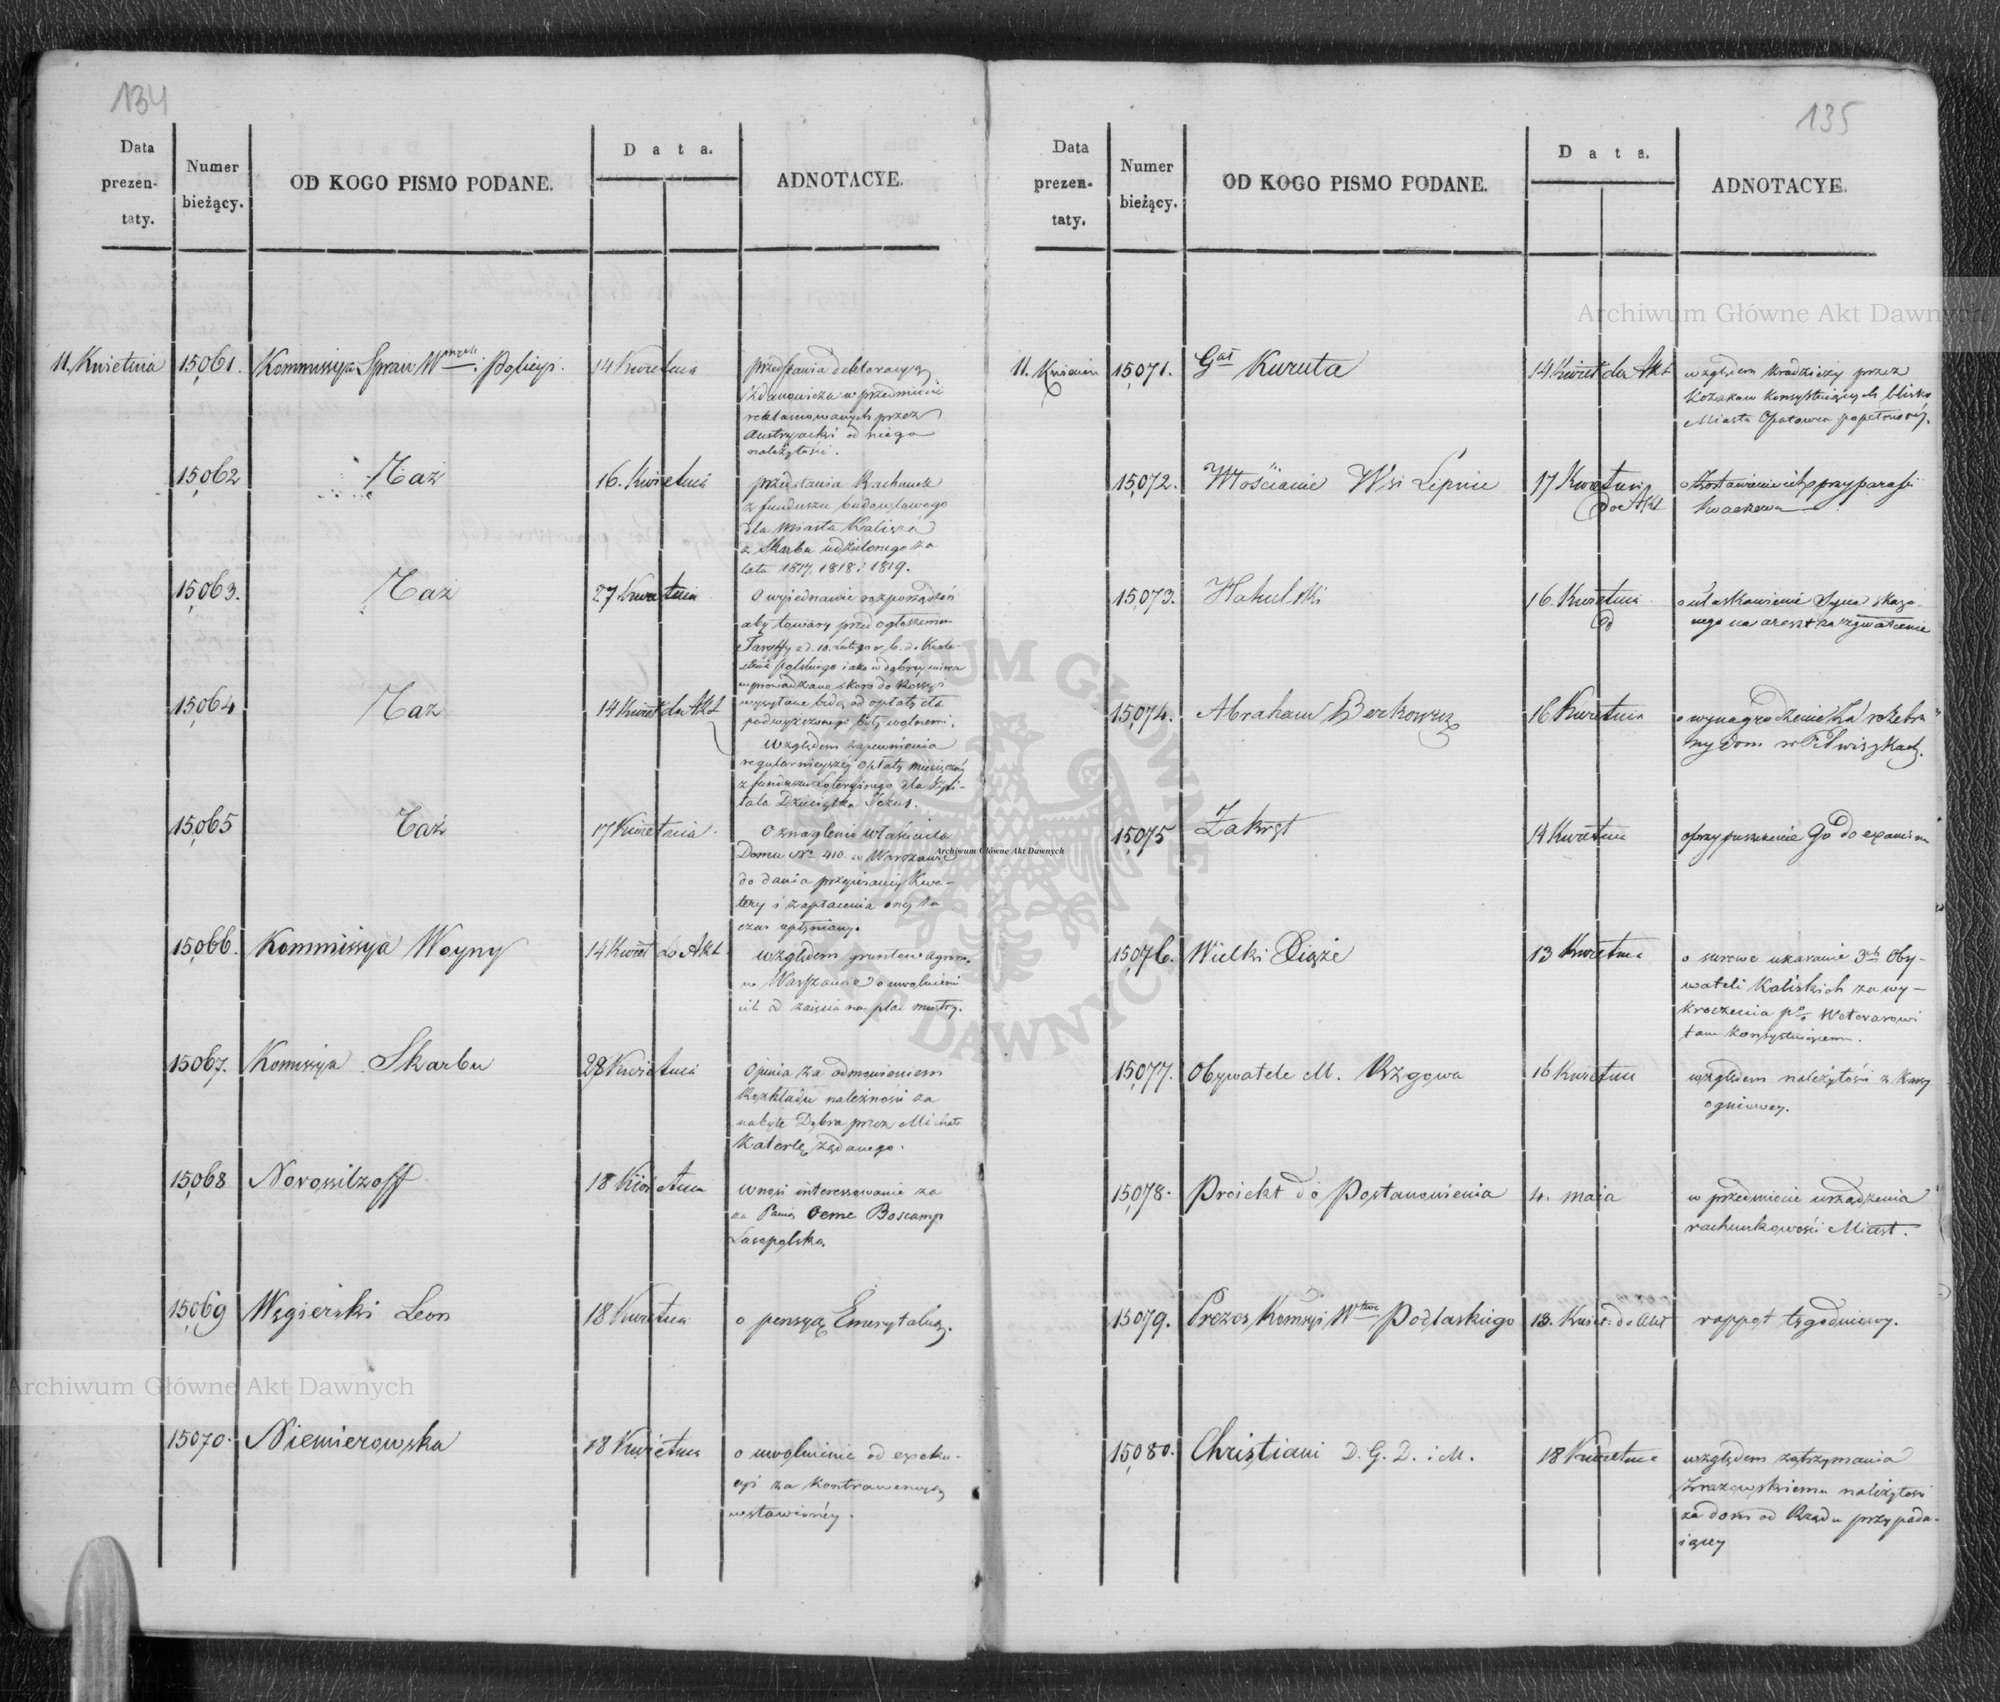 134
Data
prezen-
taty.
Numer
bieżący.
OD KOGO PISMO PODANE.
Data.
ADNOTACYE.
11. Kwietnia
15061.
Kommissya Spraw Wnętr: i Policyi.
14 Kwietnia
przedstawia deklaracyą
w przedmiocie
reklamowanych przez
Austryacki od niego
należytości.
15062
Taż
16. Kwietnia
przedstawia Rachunek
z funduszu budowlowego
dla miasta Kalisza
z Skarbu udzielonego za
lata 1817, 1818 i 1819.
15063.
Taż
27 Kwietnia
O wyjednanie rozporządzeń
aby towary przed ogłoszeniem
Taryffy z d. 10. Lutego r. b. do
polskiego iako w dobrey wierze
wprowadzane skoro do Rossyi
wysyłane będą od opłaty cła
podwyższonego były wolnemi.
15064
Taż
14 Kwiet do Akt
Względem zapewnienia
regularnieyszey opłaty miesięczney
z funduszu Loteryinego dla Szpi-
tala Dzieciątka Jezus.
15065
Taż
17 Kwietnia.
O znaglenie właściciela
Domu No 410. w Warszawie
do dania przepisaney Kwa-
tery i zapłacenia oney za
czas upłyniony.
15066.
Kommissya Woyny
14 Kwiet do Akt.
względem gruntów
w Warszawie o uwolnienie
ich od zaięcia na plac mustry.
15067.
Komissya Skarbu
28 Kwietnia
Opinia za odmówieniem
Rozkładu należności za
nabyte Dobra przez Michała
Katerlę żądanego.
15068
Novossilzoff
18 Kwietnia
wnosi interessowanie za
za Panią Oeme Boscamp
Lasopolską.
15069
Węgierski Leon
18 Kwietnia
o pensyą Emerytalną.
15070.
Niemierowska
18 Kwietnia
o uwolnienie od exeku-
cyi za kontrawencyą
wystawioney.
135
Data
prezen-
taty.
Numer
bieżący.
OD KOGO PISMO PODANE.
Data.
ADNOTACYE.
11. Kwiecień
15071.
Gał Kuruta
14 Kwiet do Akt
względem kradzieży przez
Kozaków konsystuiących blisko
Miasta Opatowca popełnioney.
15072.
Włościanie Wsi Lipnice
17 Kwietnia
do Akt
o zostawienie ich przy parafii
15073.
16. Kwietnia
o ułaskawienie Syna skaza-
nego na areszt za zgwałcenie
15074.
Abraham Berkowicz
16 Kwietnia
o wynagrodzenie za rozebra-
ny dom w Pilwiszkach.
15075
Zakrst
14 Kwietnia
o przypuszczenie Go do examinu
15076.
Wielki Xiąże
13 Kwietnia
o surowe ukaranie 3ch Oby-
wateli Kaliskich za wy-
kroczenia pko Weteranowi
tam konsystuiącemu.
15077.
Obywatele M. Rzgowa
16 Kwietnia
względem należytości z Kassy
ogniowey.
15078.
Proiekt do Postanowienia
4. maja
w przedmiocie urządzenia
rachunkowości Miast.
15079.
Prezes Komisyi Wtwa Podlaskiego
13. Kwiet. do Akt
rapport tygodniowy.
15080.
Christiani D. G. D. i M.
18 Kwietnia
względem zatrzymania
Zrazowskiemu należytości
za dom od Rządu przypada-
iącey
Archiwum Główne Akt Dawnych
Archiwum Główne Akt Dawnych
Archiwum Główne Akt Dawnych
ARCHIWUM GŁÓWNE AKT DAWNYCH